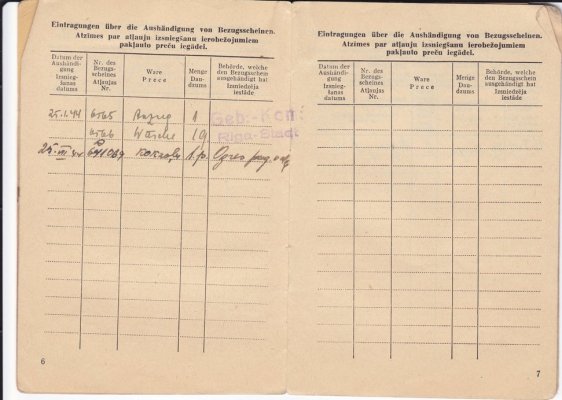 Eintragungen über die Aushändigung von Bezugsscheinen.
Atzīmes par atļauju izsniegšanu ierobežojumiem
pakļauto preču iegādei.
Datum der
Aushändi-
gung
Izsnieg-
šanas
datums
Nr. des
Bezugs-
scheines
Atļaujas
Nr.
Ware
Prece
Menge
Dau-
dzums
Behörde, welche
den Bezugsschein
ausgehändigt hat
Izsniedzēja
iestāde
25.1.44 6565 Anzug 1
6566 Wäsche 19
Geb.-Kom.
Riga-Stadt
1 p. Ogres pag.
6
Eintragungen über die Aushändigung von Bezugsscheinen.
Atzīmes par atļauju izsniegšanu ierobežojumiem
pakļauto preču iegādei.
Datum der
Aushändi-
gung
Izsnieg-
šanas
datums
Nr. des
Bezugs-
scheines
Atļaujas
Nr.
Ware
Prece
Menge
Dau-
dzums
Behörde, welche
den Bezugsschein
ausgehändigt hat
Izsniedzēja
iestāde
7